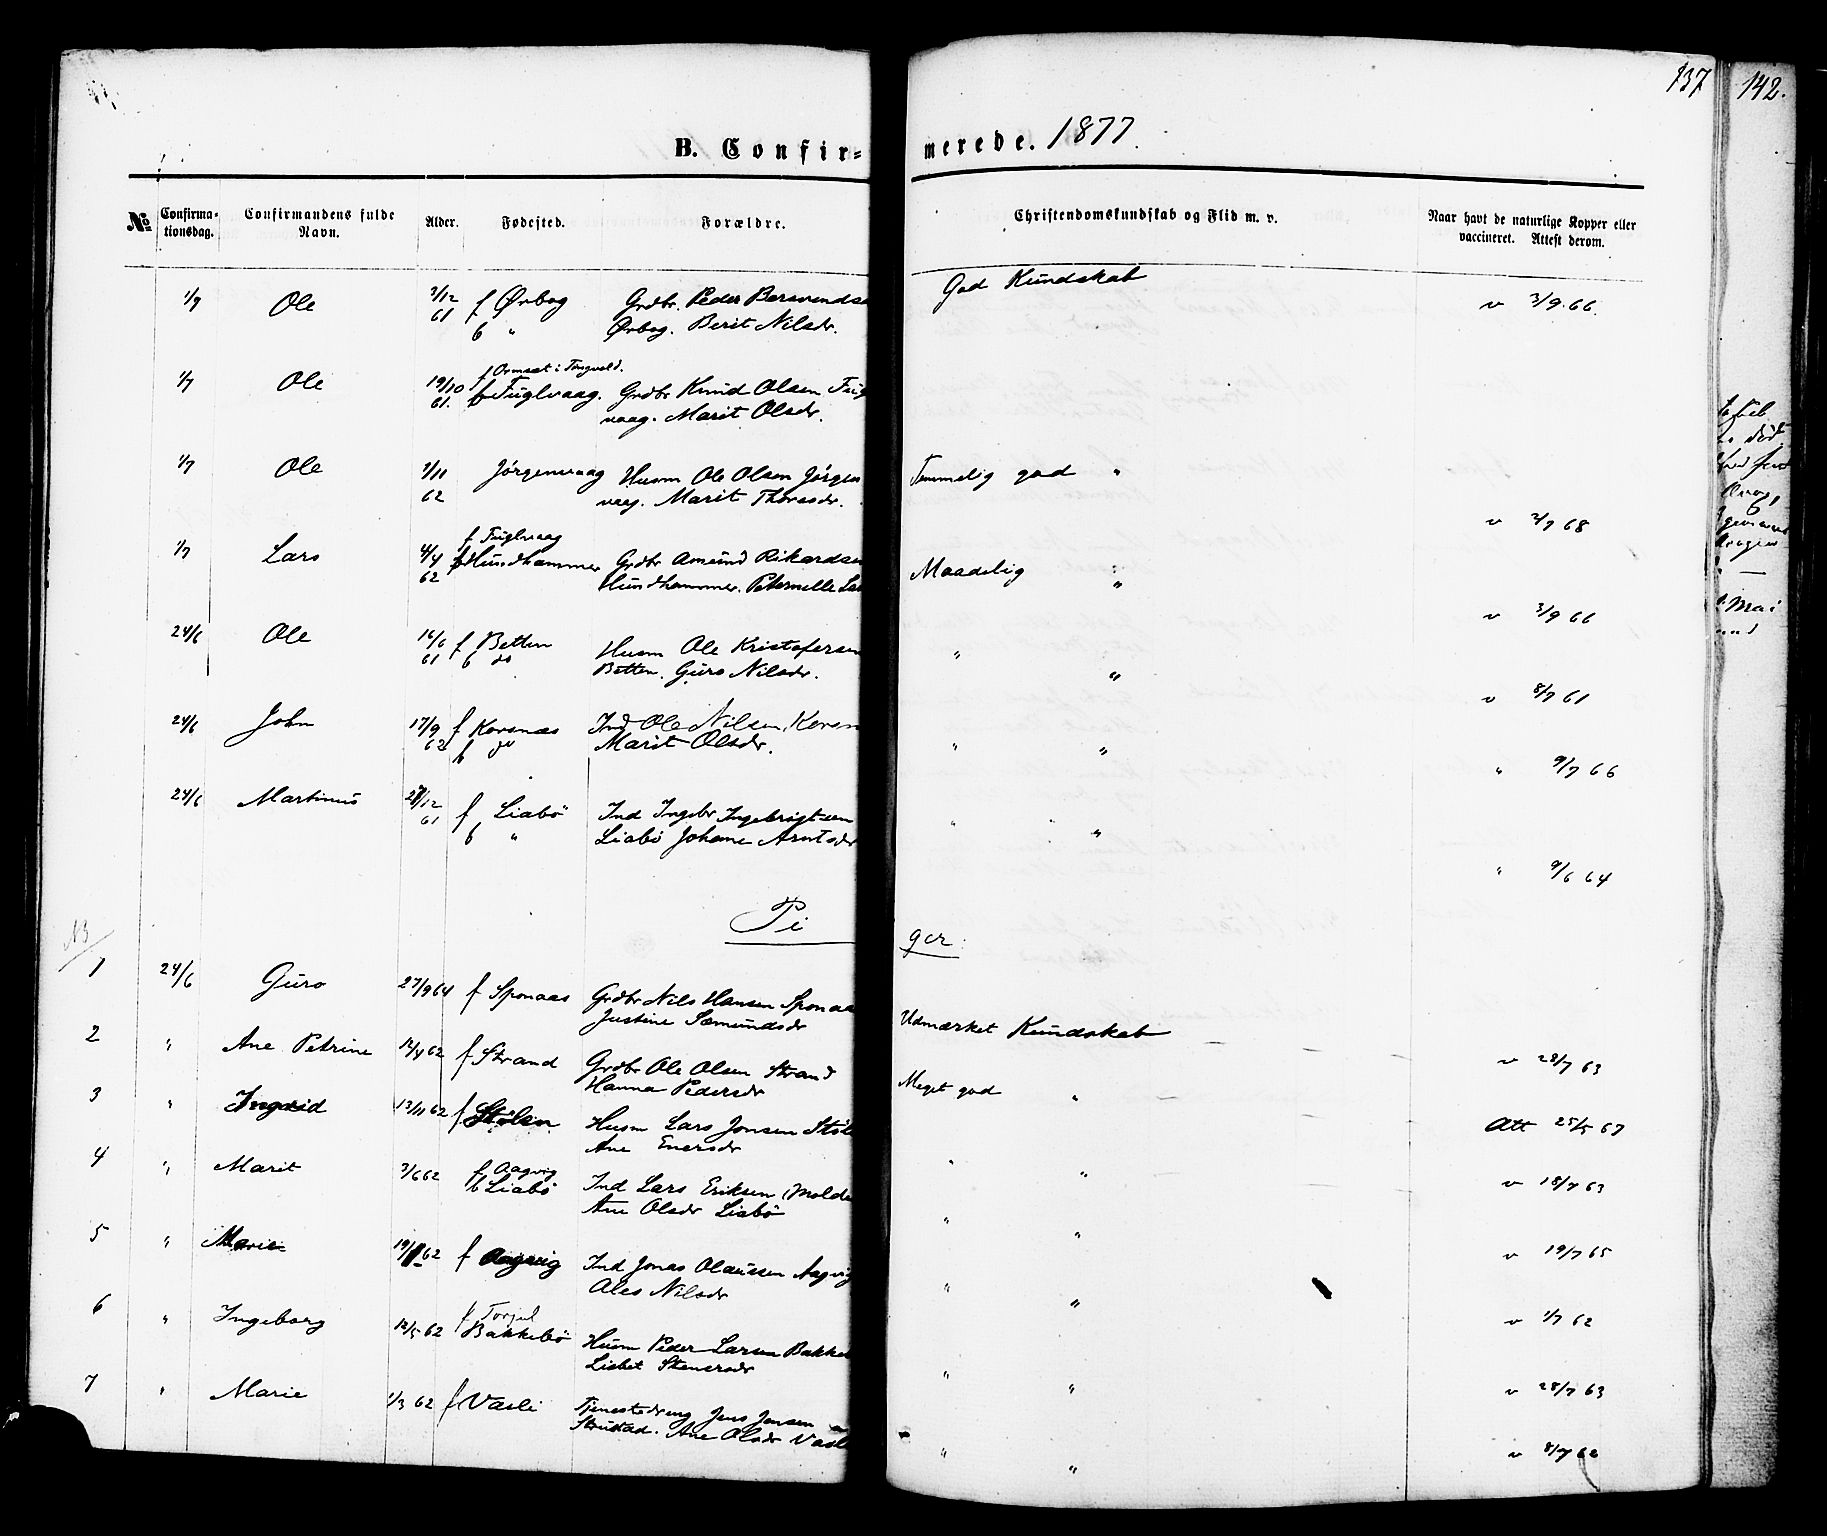 137
142.
B. Confir=
merede. 1877.
№ Confirma=tionsdag. Confirmandens fulde Navn. Alder. Fødested. Forældre.
Christendomskundskab og Flid m. v. Naar havt de naturlige Kopper eller vaccineret. Attest derom.
1/7 Ole 2/12 61 f Ørbog Grdbr. Peder
b " Ørbog. Berit Nilsdr.
God Kundskab v 3/9. 66.
1/7 Ole 19/10 61. f Ormset i Tingvold.
b Fuglvaag. Grdbr Knud Olsen Fug
vaag. Marit Olsdr.
1/7 Ole 1/11 62 Jörgenvaag Husm Ole Olsen Jörgen
vaag. Marit Thoresdr.
Temmelig god " v 2/7 68
1/7 Lars 4/4 62 f Fuglvaag
b Hundhammer Grdbr Amund Rikardsen
Hundhammer. Peternelle La
Maadelig " v 3/9 66
24/6 Ole 16/6 61 f Betten Husm Ole Kristofersen
b do Betten. Guro Nilsdr.
" " v 8/7 61
24/6 John 17/9 62 f Korsnæs Ind Ole Nilsen, Korsn
b do Marit Olsdr.
" " " 9/7 66
24/6 Martinus 27/12 61 f Liabö Ind Ingebr Ingebrigtsen
b " Liabö Johane Arntsdr
" " " 9/6 64
Pi
ger.
NB
1 24/6 Guro 27/9 64 f Sponaas Grdbr Nils Hansen Sponaa
Justine Sæmundsdr
Udmærket Kundskab v 28/7 63
2 " Ane Petrine 12/4 62 f Strand Grdbr Ole Olsen Strand
Hanna Pedersdr
Meget god " Att 25/5 67
3 " Ingrid 13/11 62 f Stölen Husm Lars Jonsen Stöl
Ane Enersdr
" " v 18/7 63
4 " Marit 3/6 62 f Aagvig
b Liabö Ind Lars Eriksen Molde
Ane Olsdr Liabö
" " v 19/7 65
5 " Marie 62 f Aagvig Ind Jonas Olaussen Aagvig
Ales Nilsdr
" " v 1/7 62
6 " Ingeborg 12/5 62 f
Bakkebö Husm Peder Larsen Bakke
Lisbet Stenersdr
" " v 28/7 63
7 " Marie 1/3 62 f Vasli Tjenestedreng Jens Jensen
Ane Olsdr Vasl
" " v 8/7 62